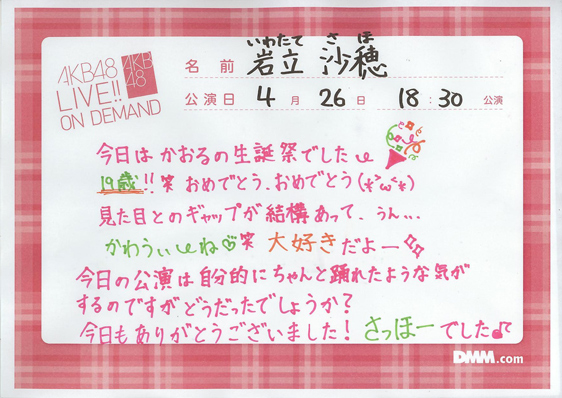 AKB48
LIVE!!
ON DEMAND
AKB
48
いわたて さほ
名前 岩立 沙穂
公演日 4月 26日 18:30 公演
今日は かおるの生誕祭でした
19歳!! 笑 おめでとう、おめでとう(*>ω<*)
見た目とのギャップが結構あって、うん...
かわうぃーね♡笑 大好きだよー
今日の公演は自分的にちゃんと踊れたような気が
するのですがどうだったでしょうか?
今日もありがとうございました! さっほーでした♪
DMM.com